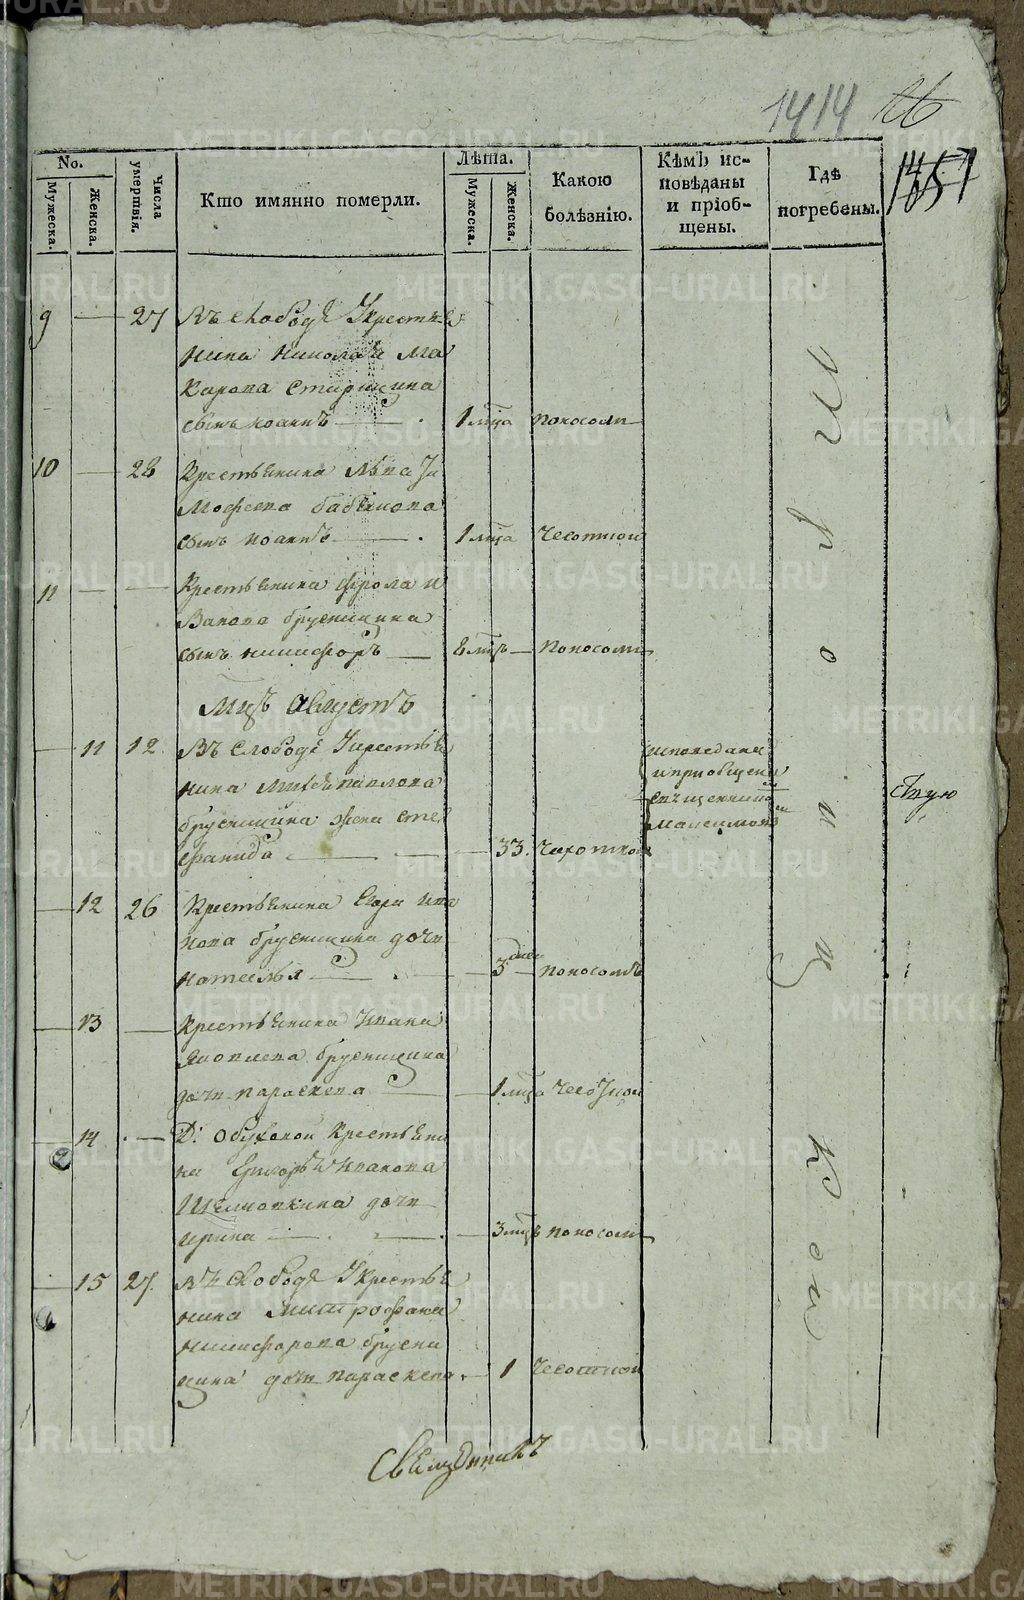 1414 26
1457
No.
Мужеска.
Женска.
Числа умертвія.
Кто имянно померли.
Лѣта.
Мужеска.
Женска.
Какою болѣзнію.
Кѣмъ ис-
повѣданы
и пріоб-
щены.
Гдѣ
погребены.
9 27 Въ слободѣ У крестья
нина Николая Ма
карова Старицина
сынъ Иоаннъ 1 мца поносом
10 28 Крестьянина Льва Ти
мофеева бабинова
сынъ Иоаннъ 1 мца Чесоткой
11 Крестьянина Фрола И
ванова брусницина
сынъ никифоръ 8 мцъ поносомъ
Мцъ Августъ
11 12 Въ слободѣ У крестья
нина павлова
брусницина жена Сте
фанида 33. Чахоткой
исповедана
и приобщена
священником
Максимовым
12 26 Крестьянина
брусницина дочь
наталья 3 дней поносомъ
13 Крестьянина Ивана
Яковлева брусницина
дочь параскева 1 мца Чесоткой
14 Д: Обуховой Крестьяни
на Григорья Иванова
дочь
ирина 3 мцъ поносомъ
15 27. Въ слободѣ У крестья
нина Митрофана
никифорова брусни
цина дочь параскева. 1 Чесоткой
На приходском
Священникъ
METRIKI.GASO-URAL.RU